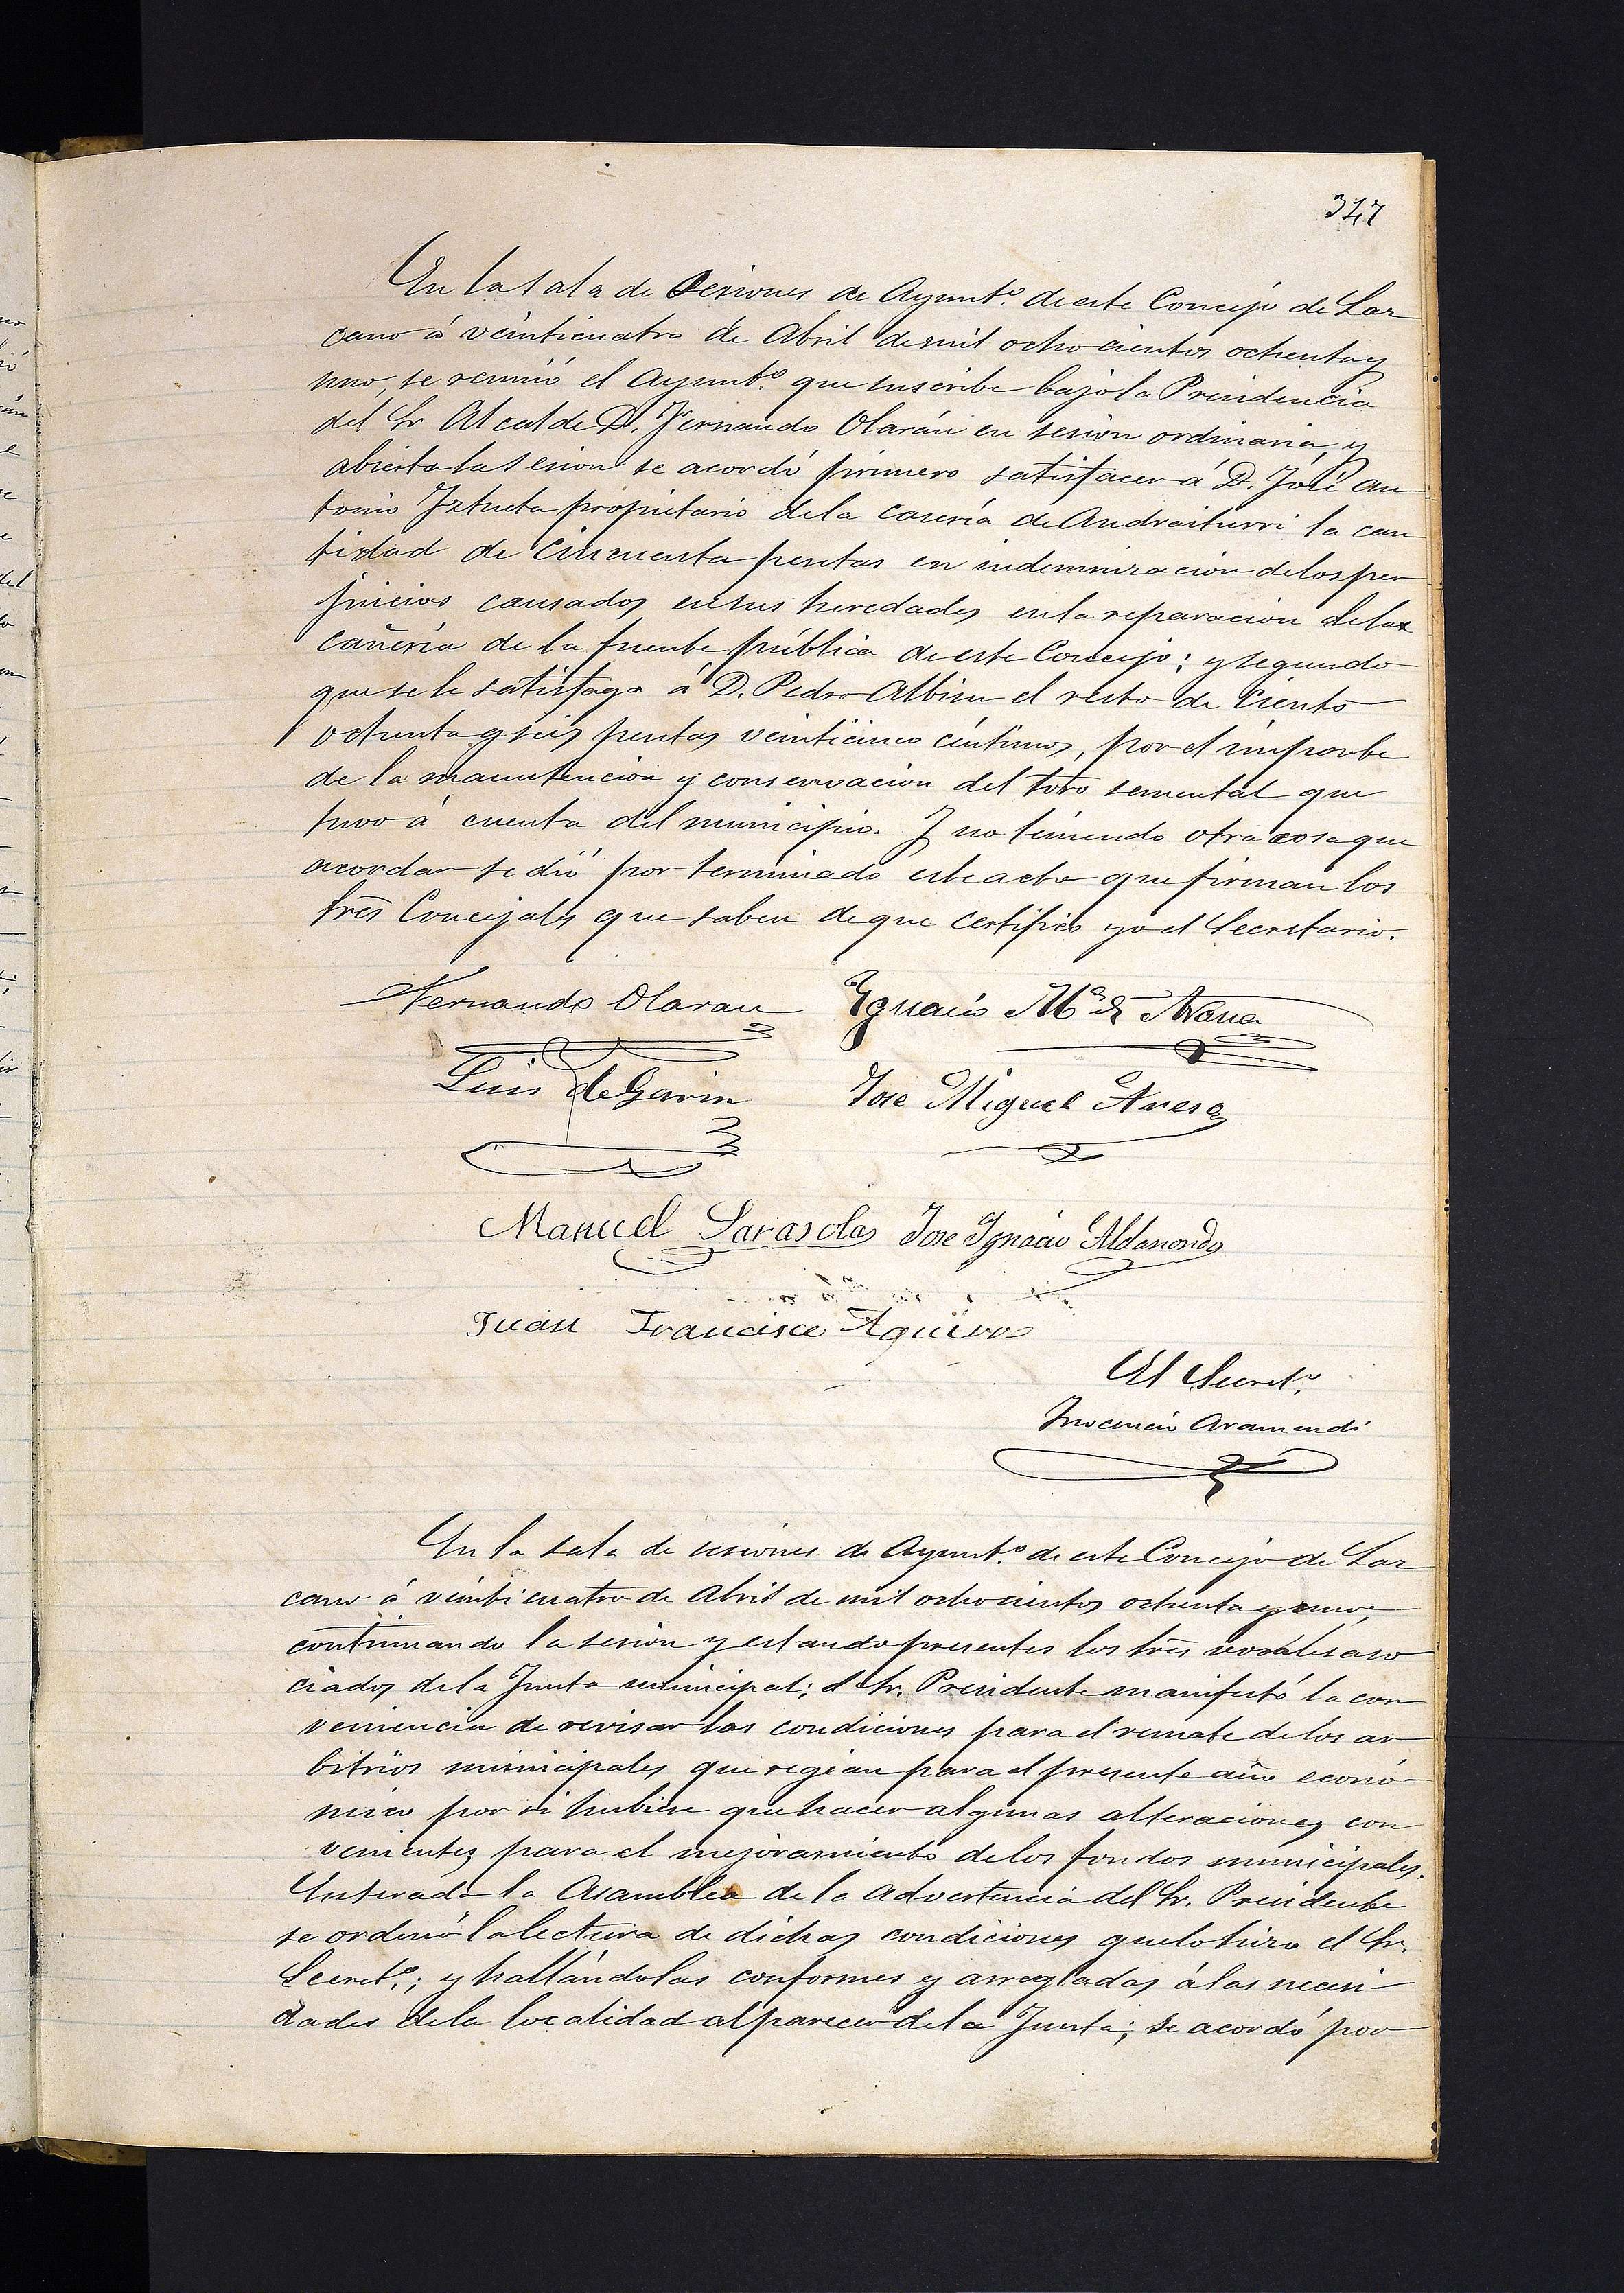 347
En la Sala de Sesiones de Ayunt.º de este Concejo de Laz
cano á veinticuatro de Abril de mil ochocientos ochenta y
uno, se reunió el Ayunt.º que suscribe bajo la Presidencia
del Sr Alcalde D. Fernando Olarán en sesion ordinaria, y
abierta la sesion se acordó primero satisfacer á D. José An
tonio Iztueta propietario de la casería de Andraiturri la can
tidad de Cincuenta pesetas en indemnizacion de los per
juicios causados en sus heredades en la reparacion de la
cañería de la fuente pública de este Concejo; y segundo
que se le satisfaga á D. Pedro Albisu el resto de Ciento
ochenta y seis pesetas veinticinco céntimos, por el importe
de la manutencion y conservacion del toro semental que
tuvo á cuenta del municipio. Y no teniendo otra cosa que
acordar se dió por terminado este acto que firman los
Sres Concejales que saben de que certifico yo el Secretario.
Fernando Olaran Ygnacio Mª de Arana
Luis de Garin Jose Miguel
Manuel Sarasola Jose Ignacio Aldanondo
Juan Francisco
El Secret.º
Inocencio Aramendi
En la sala de sesiones de Ayunt.º de este Concejo de Laz
cano á veinticuatro de Abril de mil ochocientos ochenta y uno;
continuando la sesion y estando presentes los Sres vocales aso
ciados de la Junta municipal; el Sr. Presidente manifestó la con
veniencia de revisar las condiciones para el remate de los ar
bitrios municipales que regian para el presente año econó-
mico por si hubiere que hacer algunas alteraciones con
venientes para el mejoramiento de los fondos municipales.
Enterada la Asamblea de la advertencia del Sr. Presidente
se ordenó la lectura de dichas condiciones que lo hizo el Sr.
Secret.º; y hallándolas conformes y arregladas á las necesi-
dades de la localidad al parecer de la Junta; se acordó por